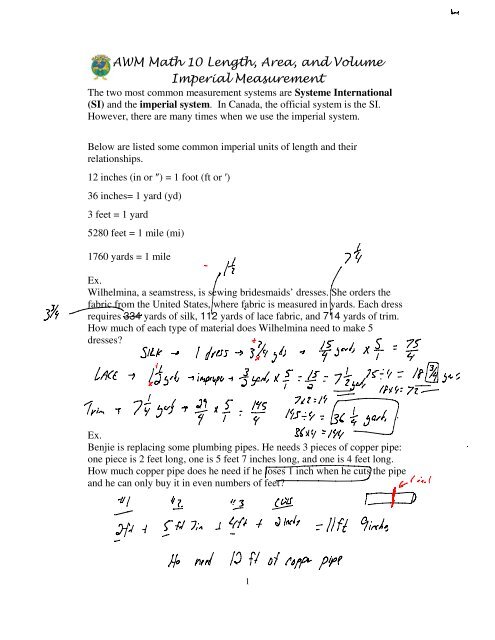 AWM Math 10 Length, Area, and Volume
Imperial Measurement
The two most common measurement systems are Systeme International
(SI) and the imperial system. In Canada, the official system is the SI.
However, there are many times when we use the imperial system.
Below are listed some common imperial units of length and their
relationships.
12 inches (in or ″) = 1 foot (ft or ′)
36 inches= 1 yard (yd)
3 feet = 1 yard
5280 feet = 1 mile (mi)
1760 yards = 1 mile
1 1/2 7 1/4
Ex.
Wilhelmina, a seamstress, is sewing bridesmaids' dresses. She orders the
fabric from the United States, where fabric is measured in yards. Each dress
3 3/4 requires 334 yards of silk, 112 yards of lace fabric, and 714 yards of trim.
How much of each type of material does Wilhelmina need to make 5
dresses?
SILK → 1 dress → 3 3/4 yds → 15/4 yards × 5/1 = 75/4
LACE → 1 1/2 yds → improper → 3/2 yards × 5/1 = 15/2 = 7 1/2 yards 75÷4 = 18 3/4 yds
7×2=14 18×4=72
Trim → 7 1/4 yards → 29/4 × 5/1 = 145/4 145÷4 = 36 1/4 yards
36×4 = 144
Ex.
Benjie is replacing some plumbing pipes. He needs 3 pieces of copper pipe:
one piece is 2 feet long, one is 5 feet 7 inches long, and one is 4 feet long.
How much copper pipe does he need if he loses 1 inch when he cuts the pipe
and he can only buy it in even numbers of feet?
#1 #2 #3 CUTS
2ft + 5 ft 7in + 4ft + 2 inch = 11ft 9inches
He need 12 ft of copper pipe
1